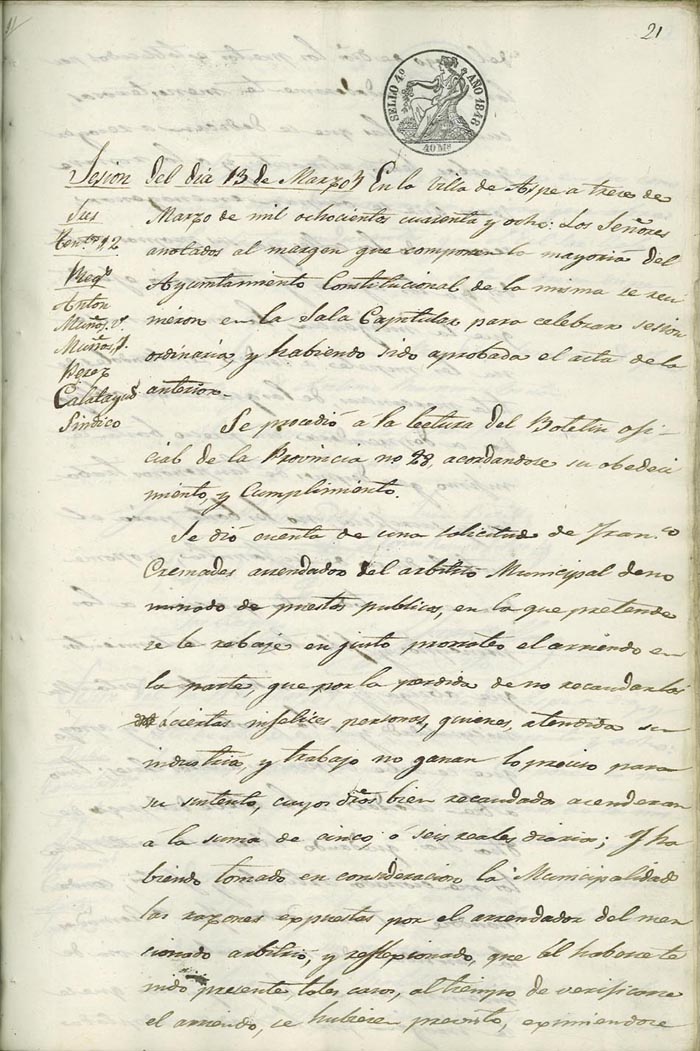 21
SELLO 4.º AÑO 1848
40 Ms
Sesion del dia 13 de Marzo En la Villa de Aspe a trece de
Marzo de mil ochocientos cuarenta y ocho: Los Señores
anotados al margen que componen la mayoria del
Ayuntamiento Constitucional de la misma se reu
nieron en la Sala Capitular para celebrar sesion
ordinaria, y habiendo sido aprobada el acta de la
anterior.
Sres
Tente 1º 2º
Req.
Anton
Muñoz,
Muñoz,
Perez
Calatayud
Sindico
Se procedió a la lectura del Boletin ofi
cial de la Provincia nº 28, acordandose su obedeci
miento, y Cumplimiento.
Se dió cuenta de una solicitud de Fran.co
Cremades arrendador del arbitrio Municipal deno
minado de puestos publicos, en la que pretende
se le rebaje en justo prorrateo el arriendo en
la parte, que por la perdida de no recaudar los
a ciertas infelices personas, quienes, atendida su
industria, y trabajo no ganan lo preciso para
su sustento, cuyos dros bien recaudada acenderan
á la suma de cinco, o seis reales diarios; Y ha
biendo tomado en consideracion la Municipalidad
las razones expuestas por el arrendador del men
cionado arbitrio, y reflexionado, que él haberse te
nido presente tales casos, al tiempo de verificarse
el arriendo, se hubiere previsto, eximiendose